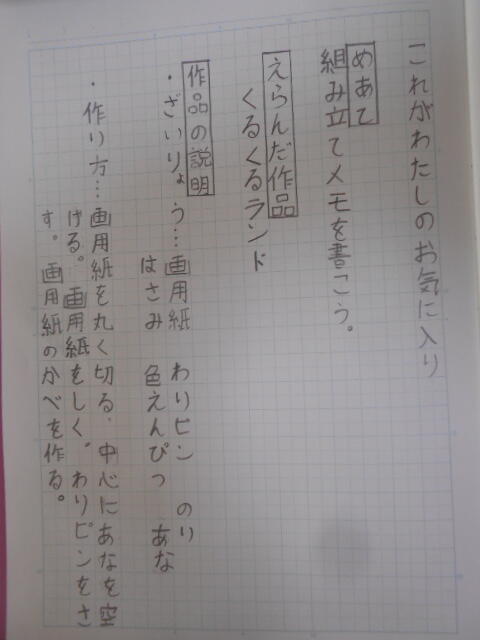 これがわたしのお気に入り
めあて
組み立てメモを書こう。
えらんだ作品
くるくるランド
作品の説明
・ざいりょう…画用紙 わりピン のり
はさみ 色えんぴつ あな
・作り方…画用紙を丸く切る。中心にあなを空
ける。画用紙をしく。わりピンをさ
す。画用紙のかべを作る。